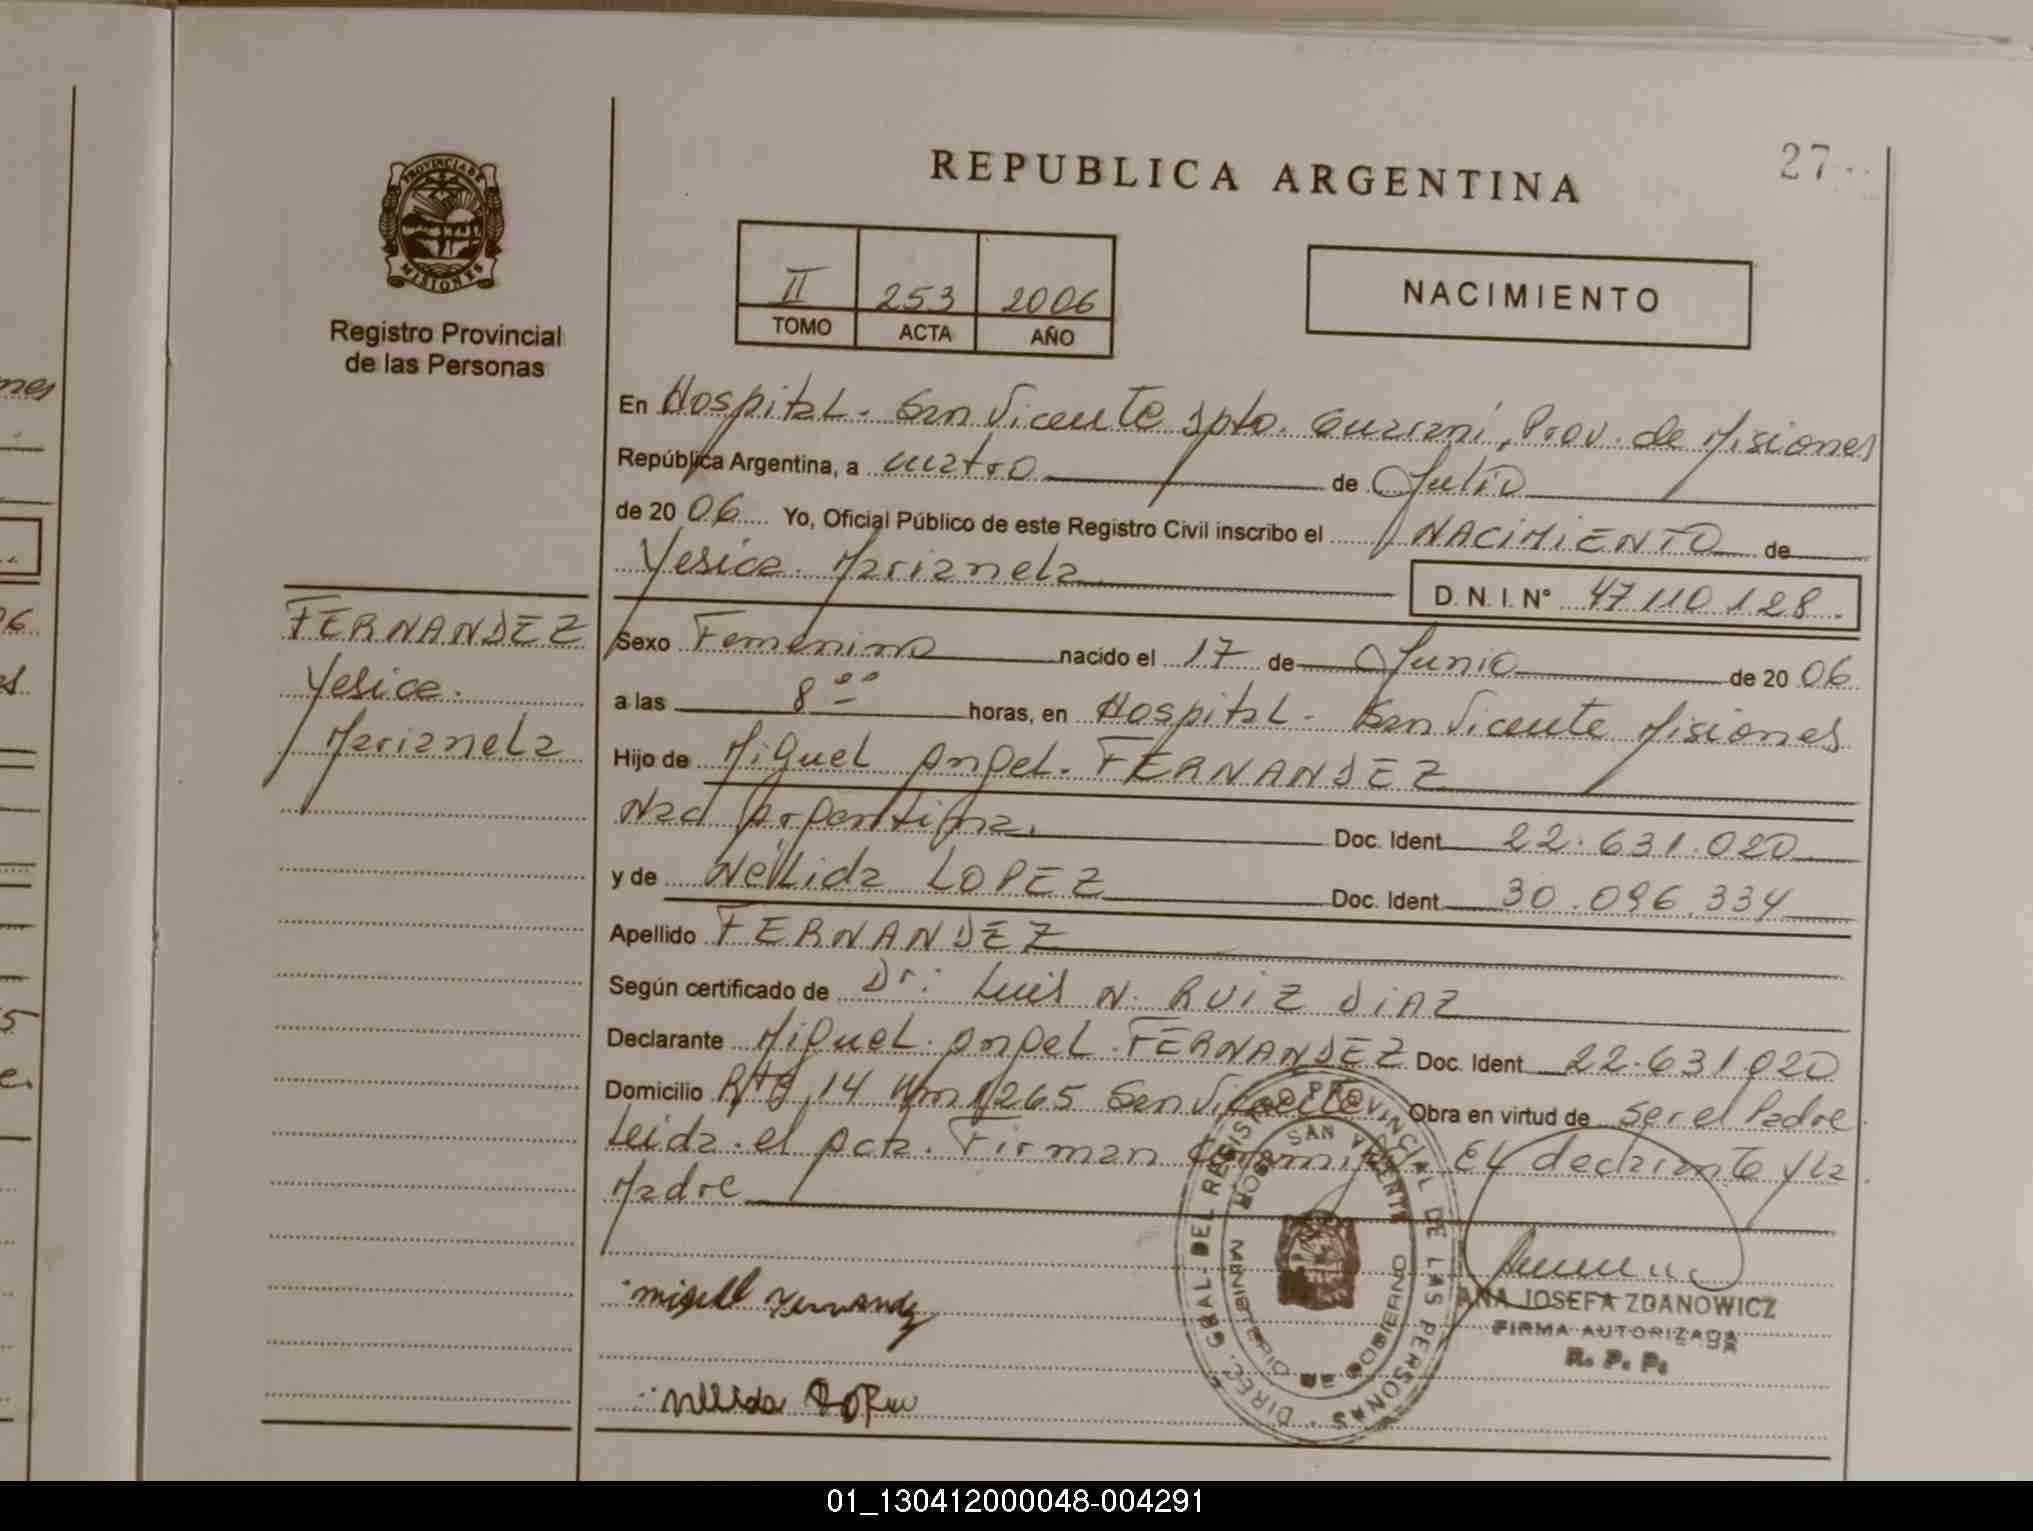 27
REPUBLICA ARGENTINA
PROVINCIA DE
MISIONES
Registro Provincial
de las Personas
II 253 2006
TOMO ACTA AÑO
NACIMIENTO
En Hospital. San Vicente Dpto. Guaraní, Prov. de Misiones
República Argentina, a cuatro de Julio
de 20 06 Yo, Oficial Público de este Registro Civil inscribo el NACIMIENTO de
Yesica Marianela
D. N. I. N° 47110128.
FERNANDEZ
Yesica.
Marianela
Sexo Femenino nacido el 17 de Junio de 20 06
a las 8 ºº horas, en Hospital - San Vicente Misiones
Hijo de Miguel Angel. FERNANDEZ
Nac Argentina. Doc. Ident 22.631.020
y de Nélida LOPEZ Doc. Ident 30.096.334
Apellido FERNANDEZ
Según certificado de Dr: Luis N. RUIZ DIAZ
Declarante Miguel Angel FERNANDEZ Doc. Ident 22.631.020
Domicilio Rta 14 Km 1265 San Vicente Obra en virtud de ser el Padre
Leida el Acta. Firman Conmigo El declarante y La
Madre
DIREC. GRAL. DEL REGISTRO PROVINCIAL DE LAS PERSONAS
SAN VICENTE
MINISTERIO DE GOBIERNO
ANA JOSEFA ZDANOWICZ
FIRMA AUTORIZADA
R. P. P.
01_130412000048-004291